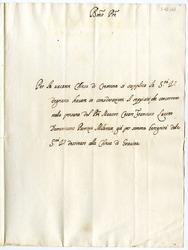 Bmo Pre
Per la vacante Chiesa di Cremona si supplica la Stà Vra
degnarsi havere in consideratione li requisiti che concorrono
nella persona del Pre Maestro Cesare Francesco Lucino
Domenicano Patrizio Milanese, già per somma benignità della
Stà Vra destinato alla Chiesa di Gravina